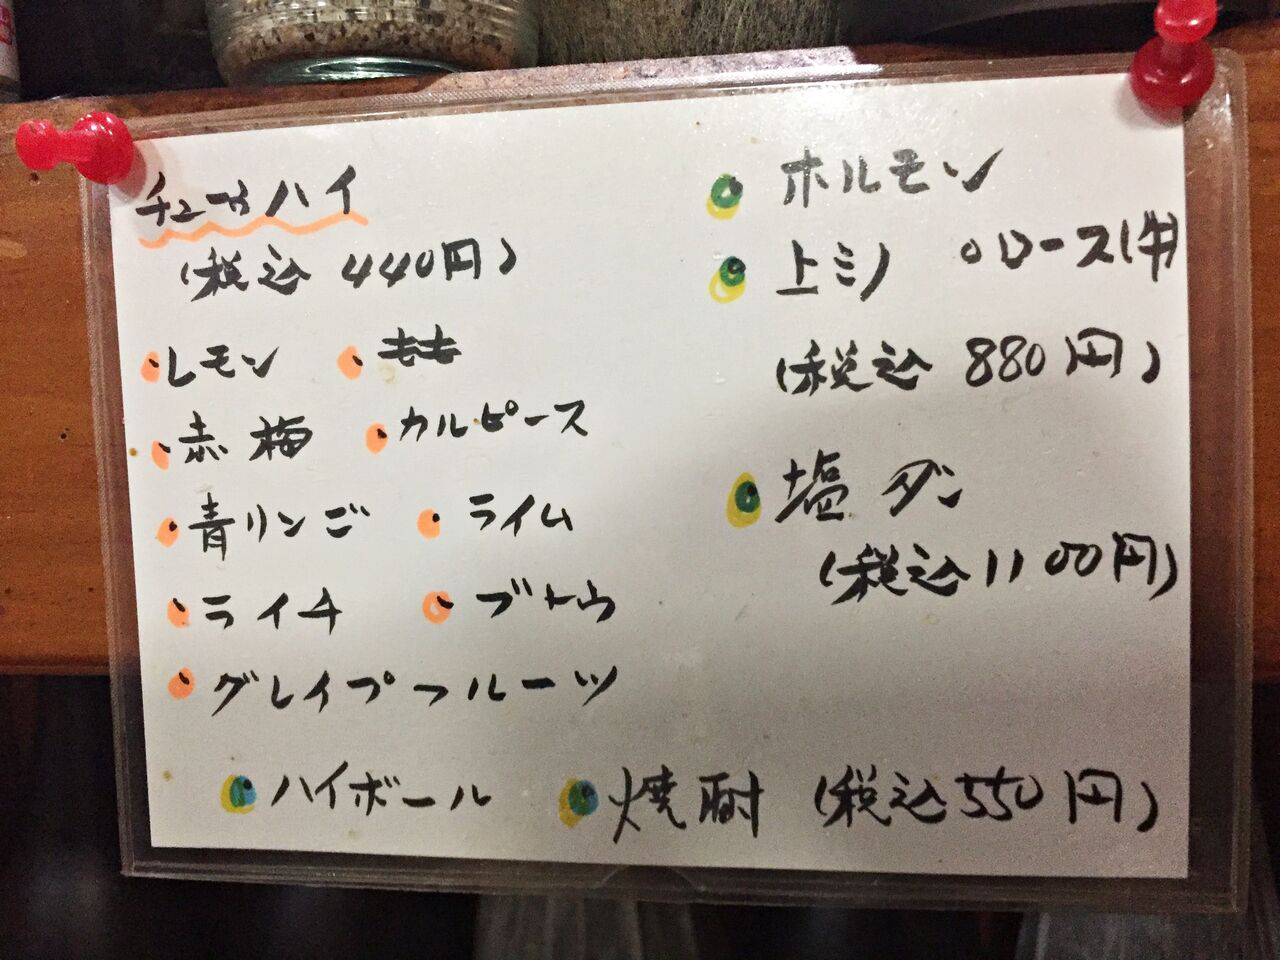 チューハイ
(税込 440円)
・レモン ・もも
・赤梅 ・カルピース
・青リンゴ ・ライム
・ライチ ・ブドウ
・グレイプフルーツ
・ハイボール ・焼酎 (税込550円)
・ホルモン
・上ミノ ○ロース(牛)
(税込 880円)
・塩タン
(税込1100円)